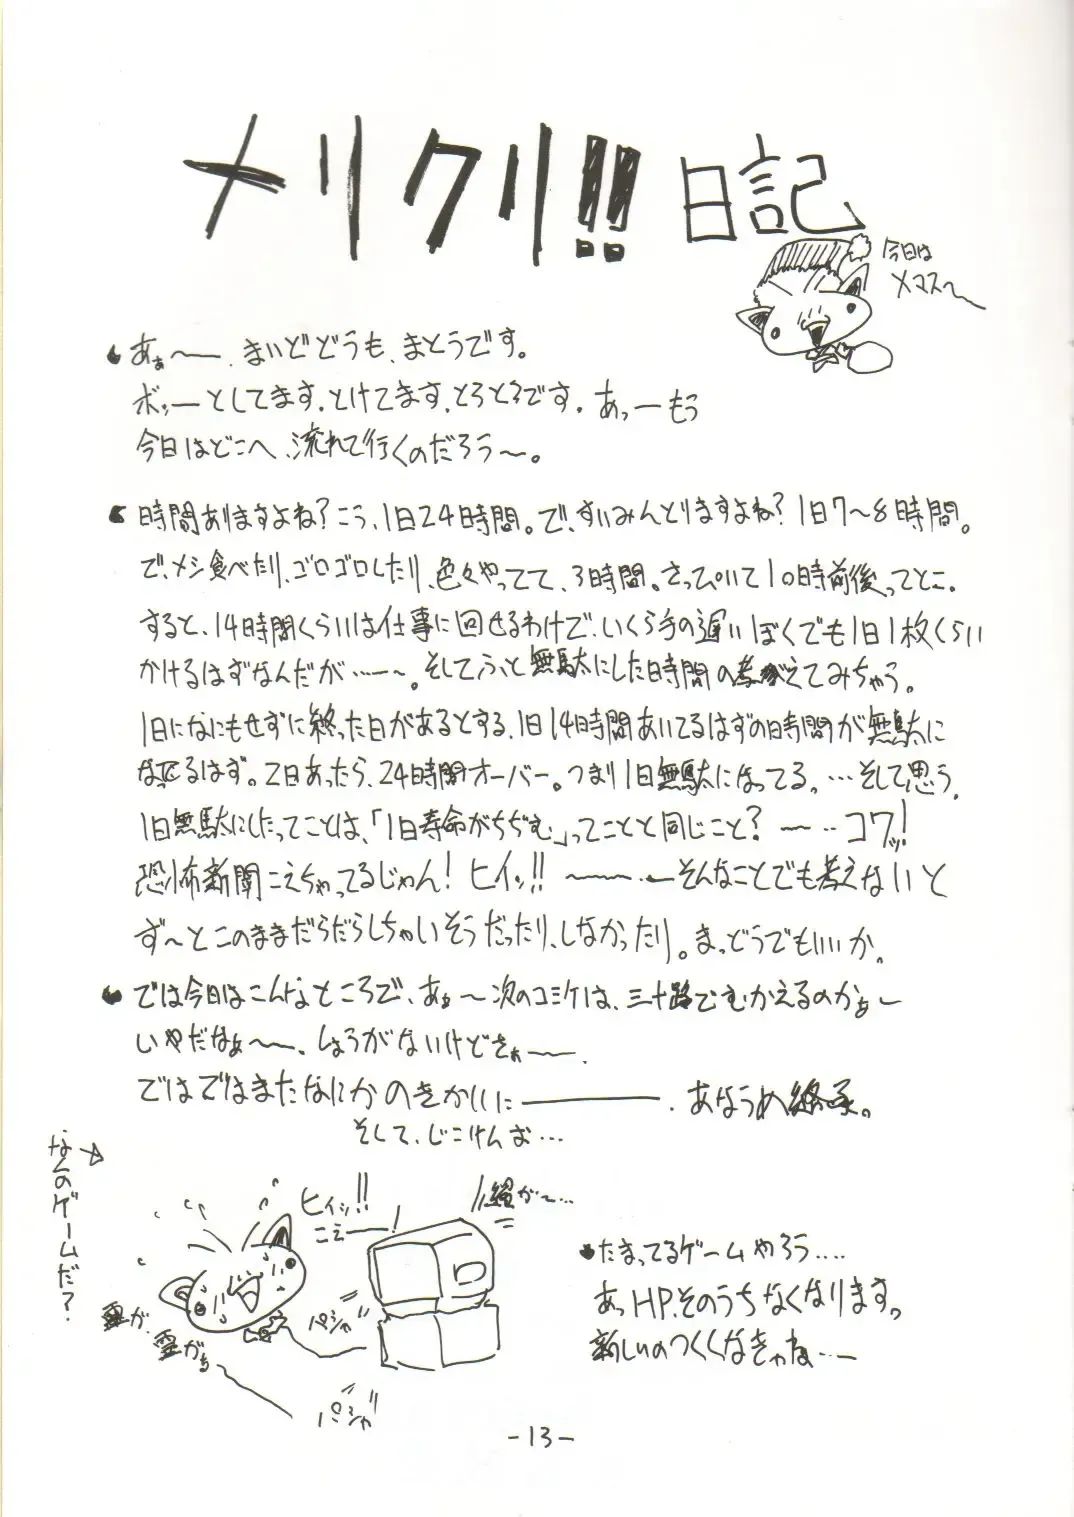 メリクリ!! 日記
今日は
メマス〜
あぁ〜―．まいどどうも、まとうです。
ボッーとしてます．とけてます．とろとろです．あっーもう
今日はどこへ、流れて行くのだろう〜。
時間ありますよね？こう、1日24時間。で、すいみんとりますよね？1日7〜8時間。
で、メシ食べたり、ゴロゴロしたり、色々やってて、3時間。さっぴいて10時前後ってとこ。
すると、14時間くらいは仕事に回せるわけで、いくら手の遅いぼくでも1日1枚くらい
かけるはずなんだが……〜。そしてふと無駄にした時間の考がえてみちゃう。
1日になにもせずに終った日があるとする、1日14時間あいてるはずの時間が無駄に
なってるはず。2日あったら、24時間オーバー。つまり1日無駄になってる。…そして思う．
1日無駄にしたってことは、「1日寿命がちぢむ」ってことと同じこと？〜‥コワッ!
恐怖新聞こえちゃってるじゃん！ヒイッ!! 〜―‥―そんなことでも考えないと
ず〜とこのままだらだらしちゃいそうだったり、しなかったり。まっどうでもいいか。
では今日はこんなところで、あぁ〜次のコミケは、三十路でむかえるのかぁ〜
いやだなぁ〜―、しょうがないけどさぁ〜―．
ではではまたなにかのきかいに―――――．あなうめ終了。
そして、じこけんお…
なんのゲームだ？
ヒイッ!!
こえ―!
霊が、
霊がぁ
パシャ
パシャ
たまってるゲームやろう‥‥
あっHP．そのうちなくなります。
新しいのつくんなきゃね…―
-13-